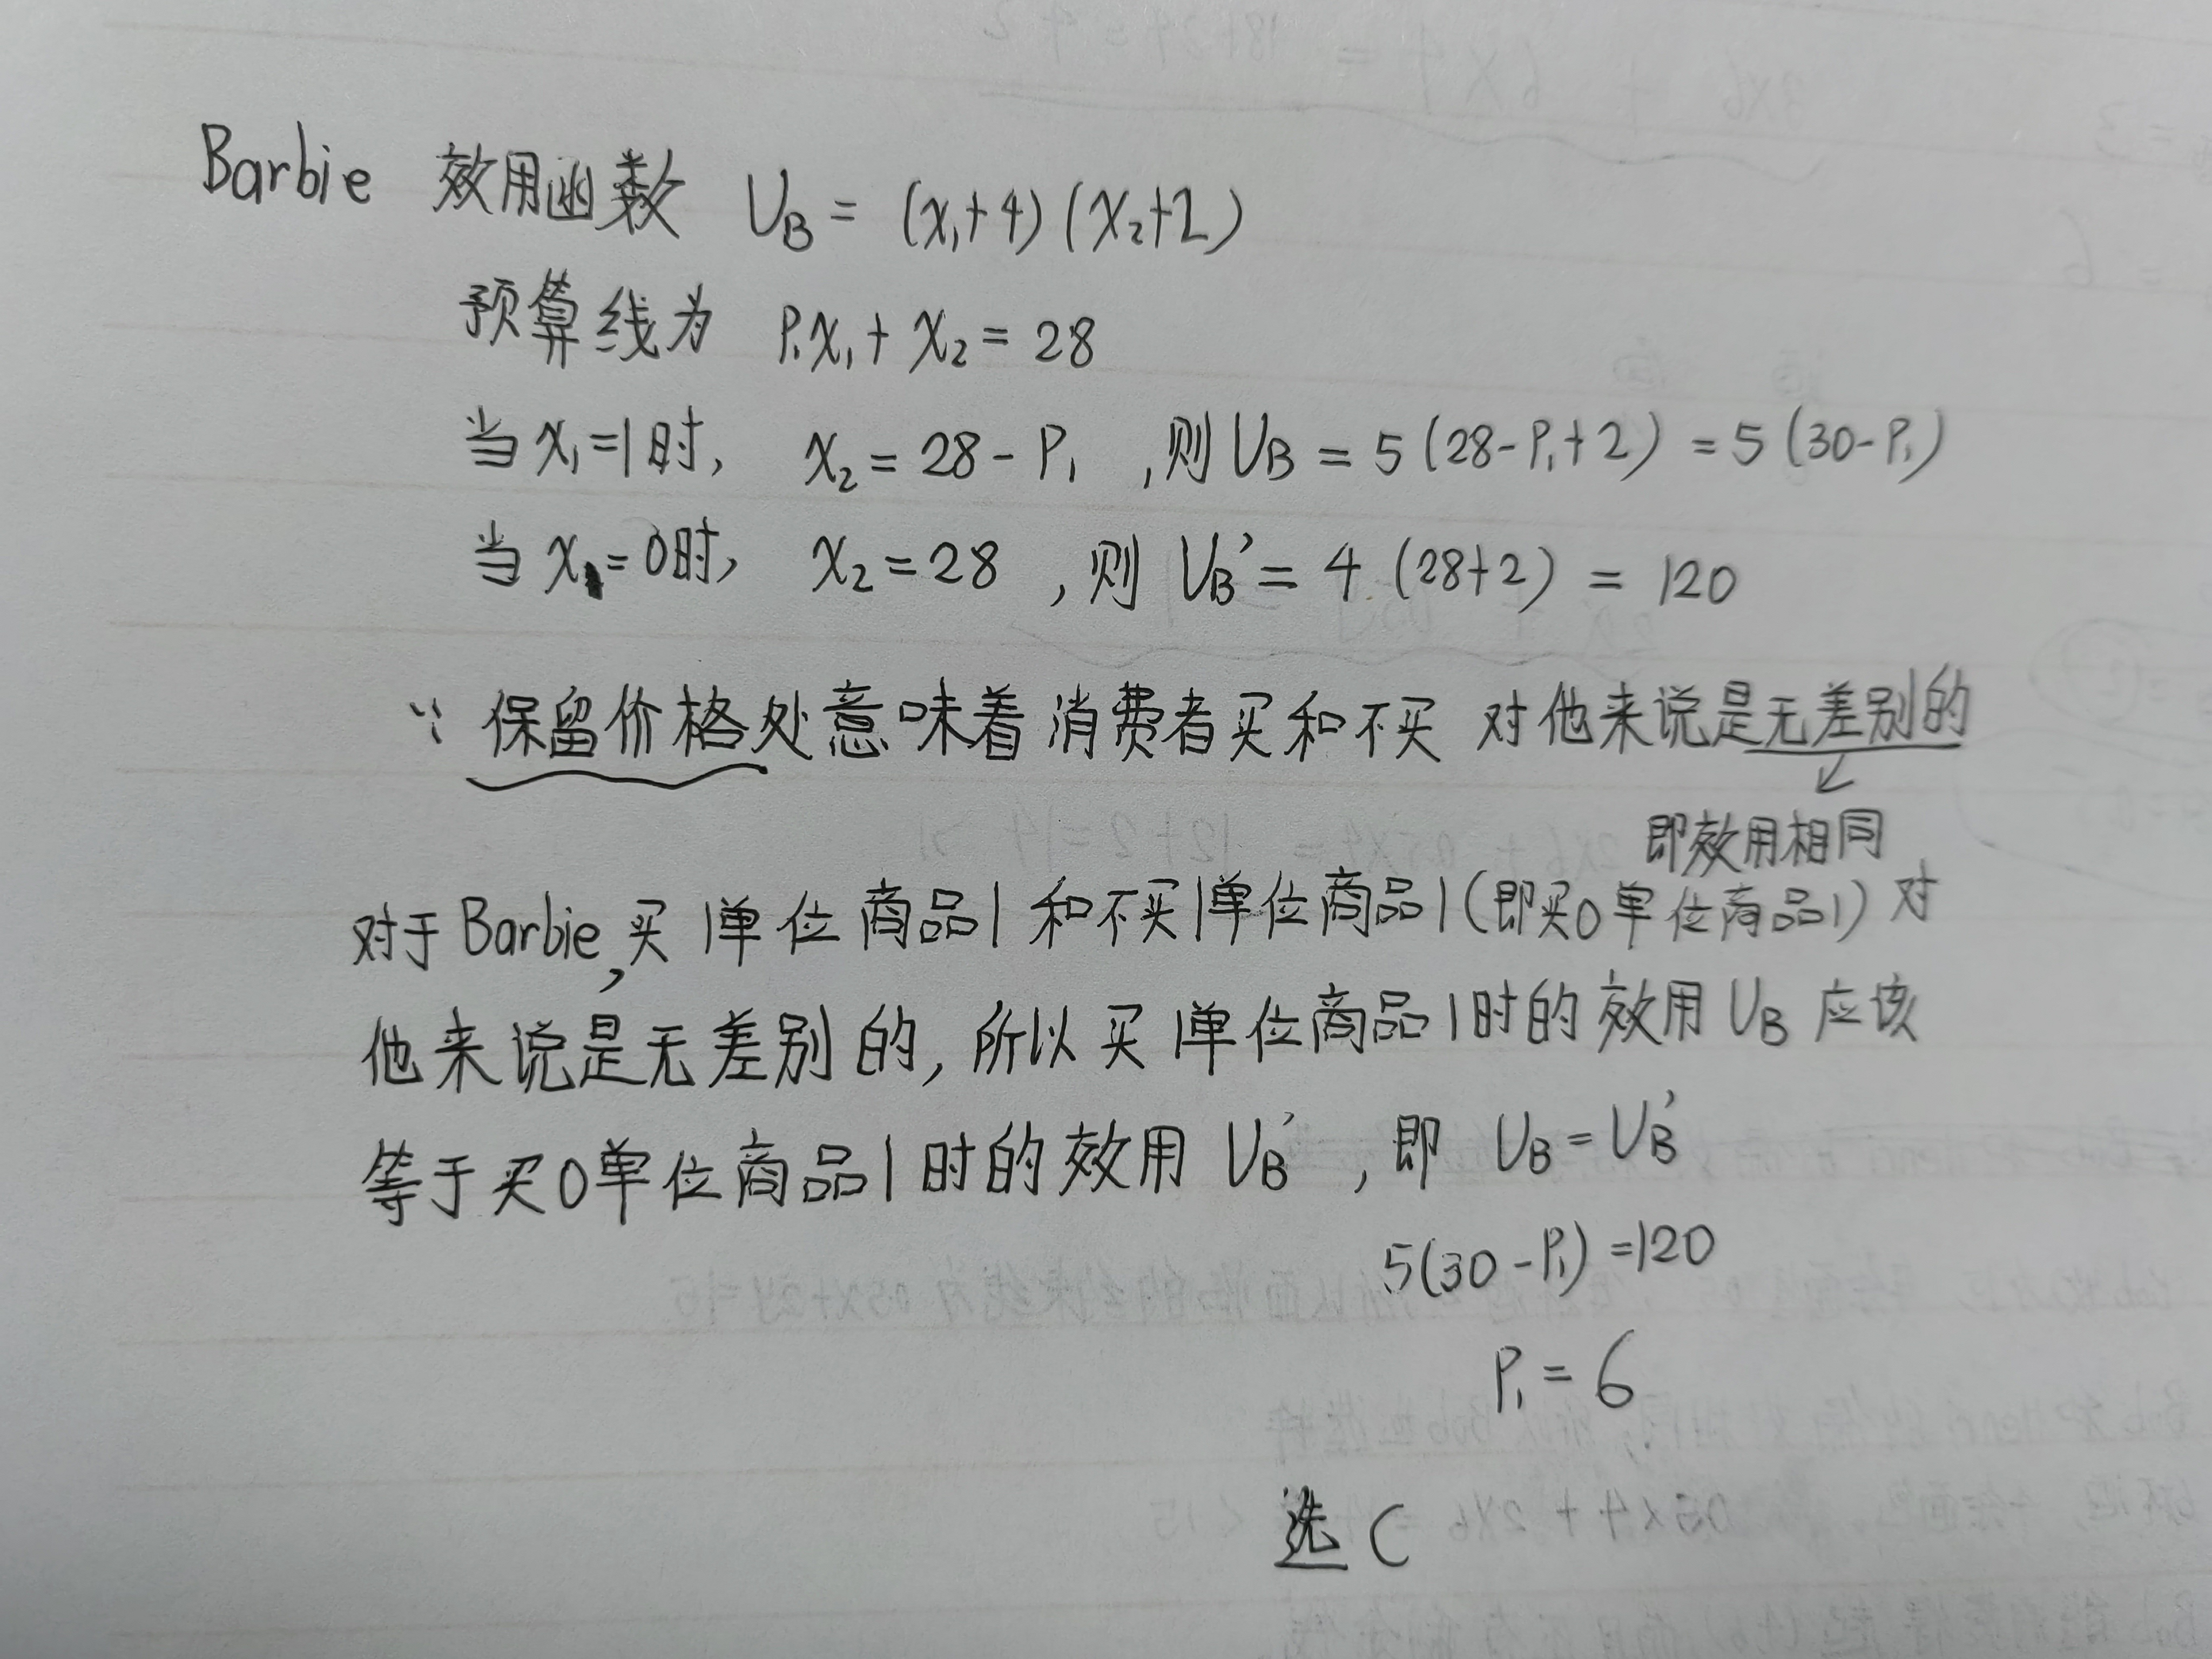 Barbie 效用函数 U_B = (x₁+4)(x₂+2)
预算线为 P₁x₁ + x₂ = 28
当 x₁=1时, x₂ = 28 - P₁ ,则 U_B = 5(28-P₁+2) = 5(30-P₁)
当 x₁=0时, x₂ = 28 ,则 U_B' = 4 (28+2) = 120
∵ 保留价格处意味着消费者买和不买 对他来说是无差别的
即效用相同
对于Barbie,买1单位商品1和不买1单位商品1(即买0单位商品1)对
他来说是无差别的,所以买1单位商品1时的效用U_B应该
等于买0单位商品1时的效用U_B',即 U_B = U_B'
5(30-P₁) = 120
P₁ = 6
选C